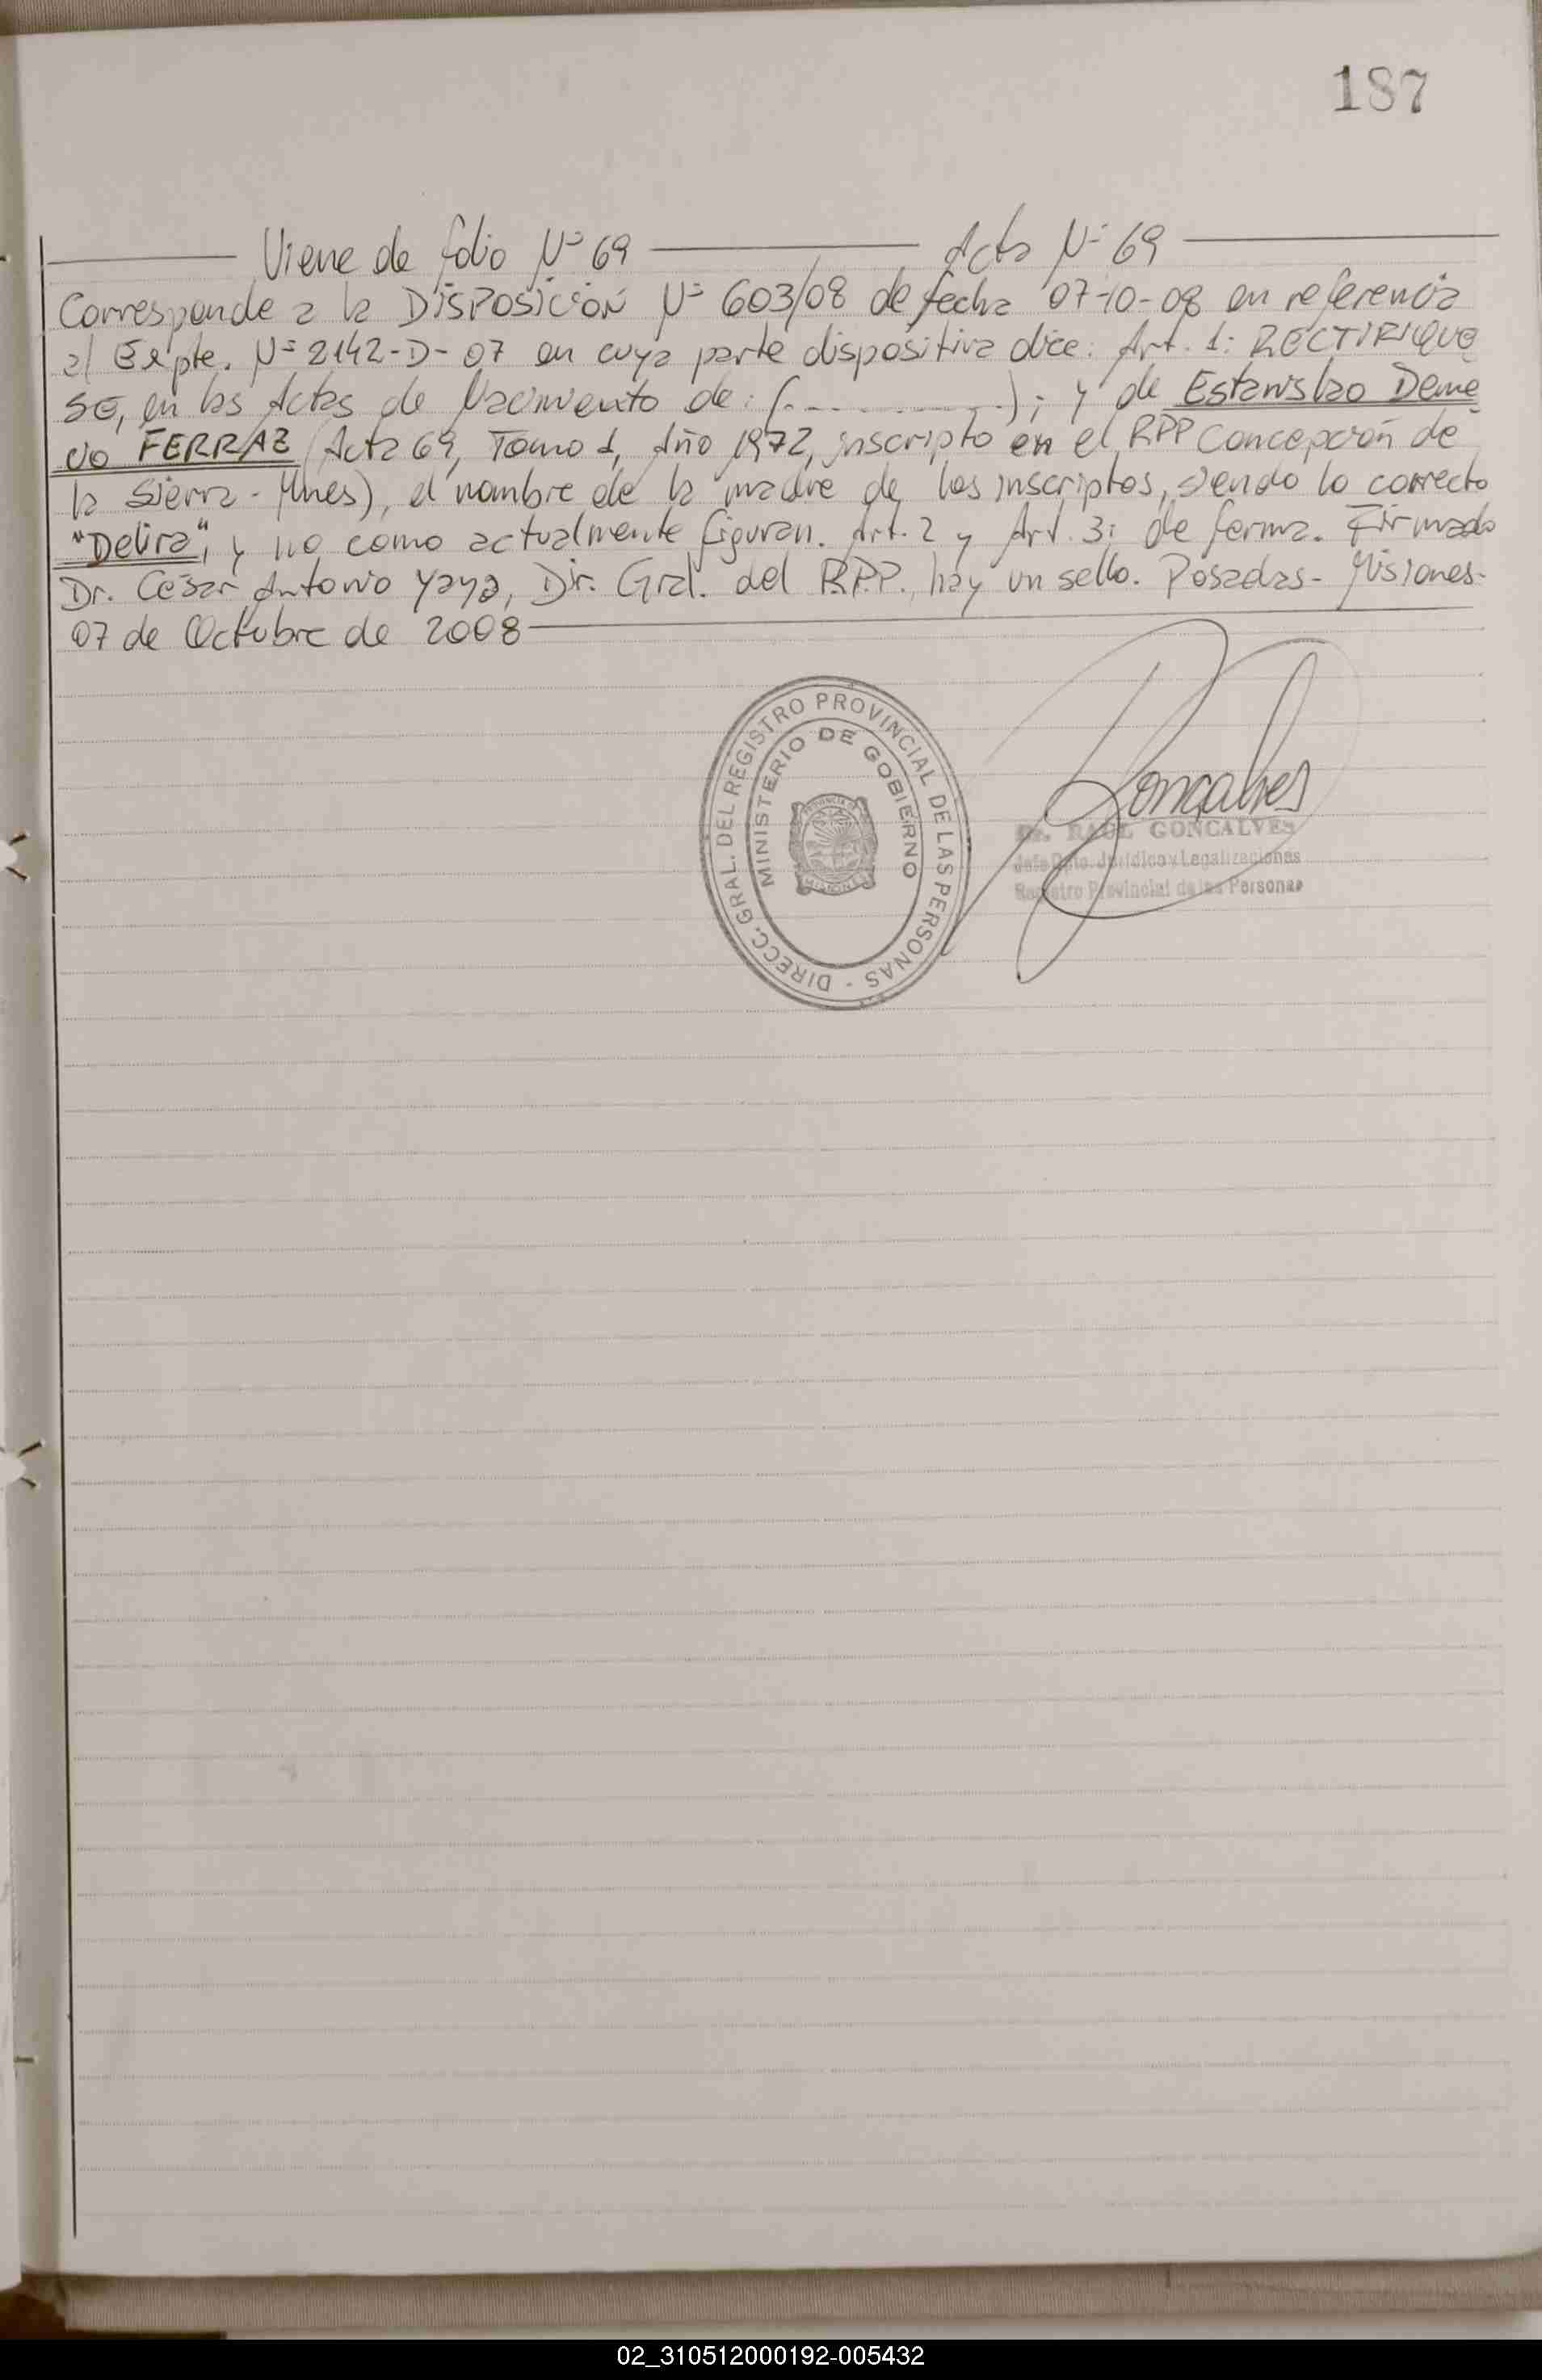 187
Viene de folio Nº 69 Acta Nº 69
Corresponde a la DISPOSICIÓN Nº 603/08 de fecha 07-10-08 en referencia
al Expte. Nº 2142-D-07 en cuya parte dispositiva dice: Art. 1: RECTIFIQUE
SE, en las Actas de Nacimiento de: (............); y de Estanislao Deme
cio FERRAZ (Acta 69, Tomo 1, Año 1972, inscripto en el RPP Concepción de
la Sierra - Mnes), el nombre de la madre de los inscriptos, siendo lo correcto
"Delira", y no como actualmente figuran. Art. 2 y Art. 3: de forma. Firmado
Dr. César Antonio Yaya, Dir. Gral. del R.P.P., hay un sello. Posadas - Misiones.
07 de Octubre de 2008
DIRECC. GRAL. DEL REGISTRO PROVINCIAL DE LAS PERSONAS -
MINISTERIO DE GOBIERNO
PROVINCIA DE
MISIONES
Goncalves
Dr. RAUL GONCALVES
Jefe Dpto. Jurídico y Legalizaciones
Registro Provincial de las Personas
02_310512000192-005432